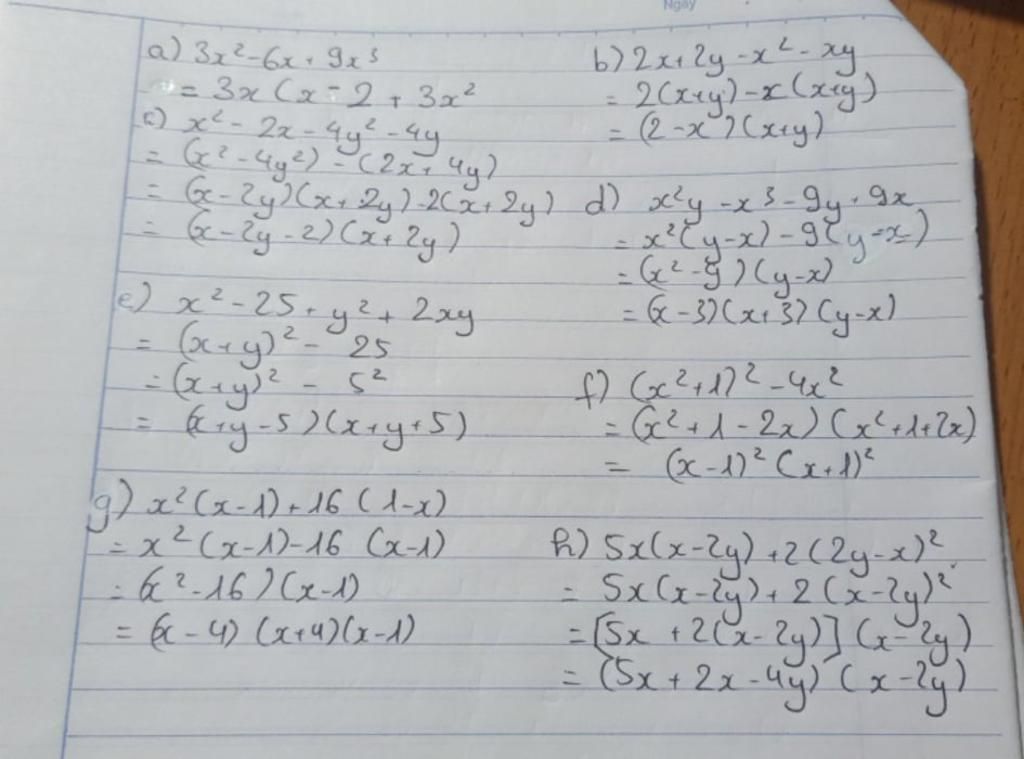 Ngày
a) 3x² - 6x + 9x³
= 3x (x - 2 + 3x²
b) 2x + 2y - x² - xy
= 2(x+y) - x(x+y)
= (2-x)(x+y)
c) x² - 2x - 4y² - 4y
= (x² - 4y²) - (2x + 4y)
= (x - 2y)(x + 2y) - 2(x + 2y)
= (x - 2y - 2)(x + 2y)
d) x²y - x³ - 9y + 9x
= x²(y-x) - 9(y-x)
= (x² - 9)(y-x)
= (x-3)(x+3)(y-x)
e) x² - 25 + y² + 2xy
= (x+y)² - 25
= (x+y)² - 5²
= (x+y-5)(x+y+5)
f) (x²+1)² - 4x²
= (x²+1-2x)(x²+1+2x)
= (x-1)² (x+1)²
g) x²(x-1) + 16(1-x)
= x²(x-1) - 16(x-1)
= (x² - 16)(x-1)
= (x-4)(x+4)(x-1)
h) 5x(x-2y) + 2(2y-x)²
= 5x(x-2y) + 2(x-2y)²
= [5x + 2(x-2y)](x-2y)
= (5x + 2x - 4y)(x-2y)